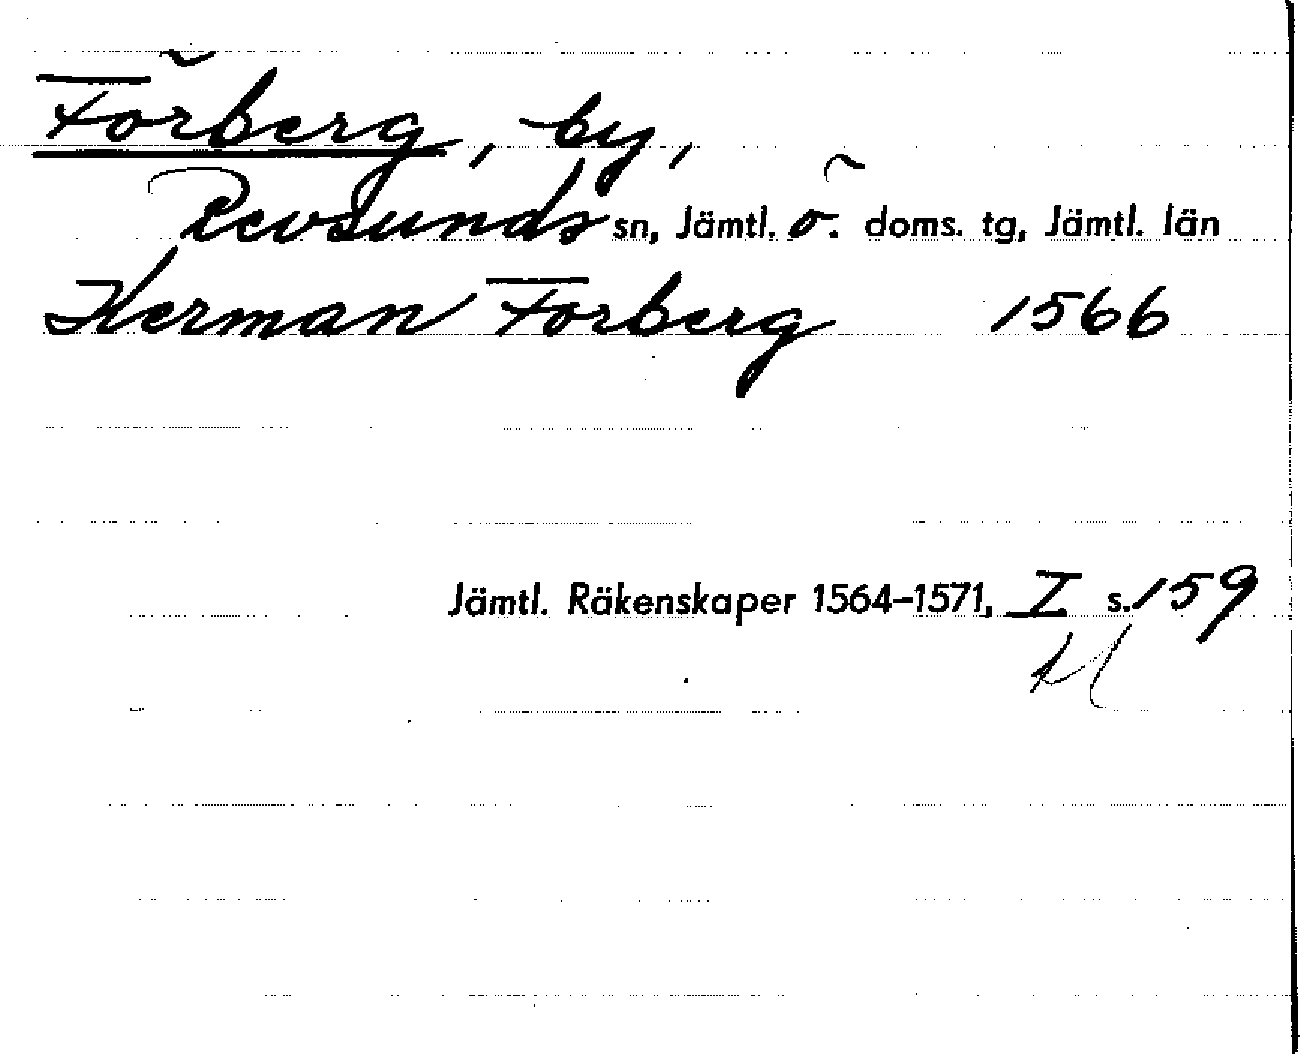 Förberg, by,
Revsunds sn, Jämtl. ö. doms. tg, Jämtl. län
Herman Forberg 1566
Jämtl. Räkenskaper 1564-1571, I s. 159